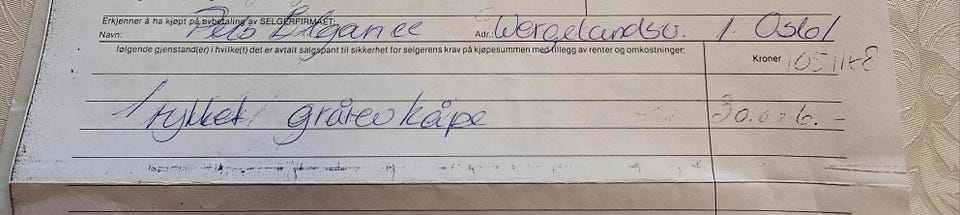 Erkjenner å ha kjøpt på avbetaling av SELGERFIRMAET:
Navn: Pels Elegance Adr.: Wergelandsv. 1. Oslo 1
følgende gjenstand(er) i hvilke(t) det er avtalt salgspant til sikkerhet for selgerens krav på kjøpesummen med tillegg av renter og omkostninger:
Kroner
1 stykket grårev kåpe 30.000.-